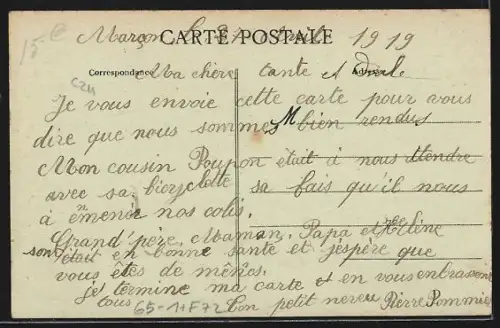 Marçon le 21 Avril 1919
CARTE POSTALE
Correspondance
Ma chère tante et
Je vous envoie cette carte pour vous
dire que nous sommes bien rendus
Mon cousin Poupon était à nous attendre
avec sa bicyclette sa fais qu'il nous
à emener nos colis.
Grand'père, Maman, Papa et Hélène
son était en bonne santé et j'espère que
vous êtes de mêmes.
je termine ma carte et en vous enbrassons
tous
Ton petit neveu Pierre Pommier
65-1+F72